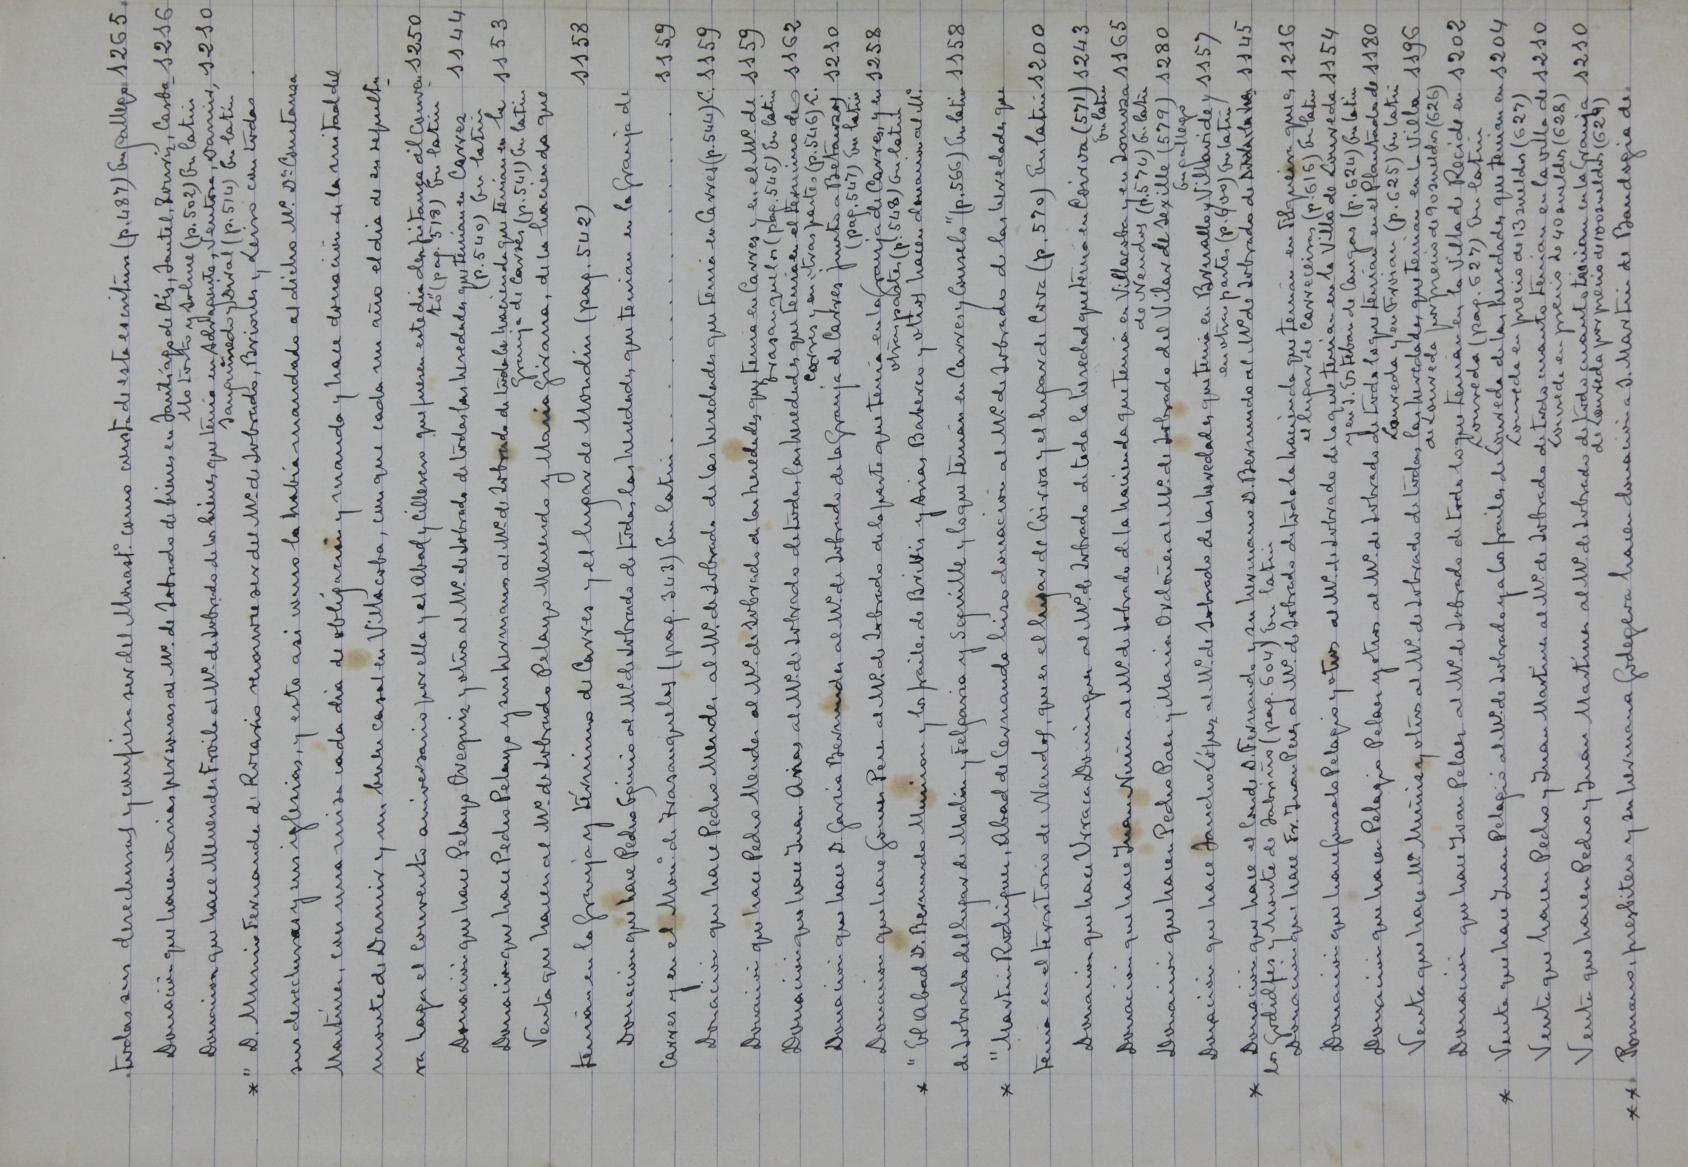 todas sus derechuras y compra ser del Monastº. como consta de esta escritura (p. 487) En gallego 1265.
Donacion que hacen varias personas al Mº. de Sobrado de bienes en Santiago de Cis, Santel, Rouris, Carba 1216
Mo torto y Solune (p. 502) En latin
Donacion que hace Menendo Froila al Mº. de Sobrado de los bienes que tenia en Adragonte, Ventosa, Damir, 1210
Sanguinedo y Sisral (p. 514) En latin
* " D. Munio Fernande de Rodeiro renovose ser del Mº. de Sobrado, Briones, y Leiro con todas
sus derechuras y sus iglesias, y esto asi como lo habia mandado al dicho Mº. Dª Constanza
Martinez, con una misa cada dia de obligacion y manda y hace donacion de la mitad del
monte de Damir y mi buen casal en Villacoba, con que cada un año el dia de mi sepultu-
ra haga el Convento aniversario por ella y el Abad y Cillerero que peren este dia den pitanza al Conven- 1250
tó" (pag. 518) En latin
Donacion que hace Pelayo Ovequiz y otros al Mº. de Sobrado de todas las heredades que tenian en Carres 1144
(p. 540) En latin
Donacion que hace Pedro Pelayo y sus hermanos al Mº. de Sobrado de toda la hacienda que tenian en la 1153
Granja de Carres (p. 541) En latin
Venta que hacen al Mº. de Sobrado Pelayo Menendo y Maria Girarra, de la hacienda que
tenian en la Granja y término de Carres y el lugar de Mondin (pag. 542) 1158
Donacion que hace Pedro Garcia al Mº. de Sobrado de todas las heredades que tenian en la Granja de
Carres y en el Moiño de Frasanquelos (pag. 543) En latin 1159
Donacion que hace Pedro Mendez al Mº. de Sobrado de las heredades que tenia en Carres (p. 544) C. 1159
Donacion que hace Pedro Mendez al Mº. de Sobrado de las heredades que tenia en Carres y en el Mº. de 1159
Frasanquelos (pag. 545) En latin
Donacion que hace Juan Arias al Mº. de Sobrado de todas las heredades que tenia en el término de 1162
Carres y en otras partes (p. 546) C.
Donacion que hace D. Garcia Bermudez al Mº. de Sobrado de la Granja de Carres junto a Betanzos 1210
(pag. 547) En latin
Donacion que hace Gomez Perez al Mº. de Sobrado de la parte que tenia en la Granja de Carres, y en 1258
otras partes (p. 548) En latin
* " El Abad D. Bermundo Munion y los fraile, de Brivis y Arias Baberco y otros hacen donacion al Mº.
de Sobrado del lugar de Modin y Felgaria y Segville y lo que tenian en Carres y Conselo" (p. 566) En latin 1158
* " Martin Rodriguez, Abad de Cervando hizo donacion al Mº. de Sobrado de las heredades que
tenia en el territorio de Nendos, que es el lugar de Coirva y el lugar de Corra (p. 570) En latin 1200
Donacion que hace Urraca Dominguez al Mº. de Sobrado de toda la heredad que tenia en Coirva (571) 1243
En latin
Donacion que hace Juan Nuñez al Mº. de Sobrado de la hacienda que tenia en Villacoba y en Donviza 1165
de Nendos (p. 574) En latin
Donacion que hacen Pedro Paez y Maria Ordoñez al Mº. de Sobrado del Vilar de Sexille (579) 1280
En gallego
Donacion que hace Sancho Lópes al Mº. de Sobrado de las heredades que tenia en Brucallos y Villavide y 1157
en otras partes (p. 600) En latin
* Donacion que hace el Conde D. Fernando y su hermano D. Bermundo al Mº de Sobrado de 1145
los Godulfes y Monte de Sabriño (pag. 604) En latin
Donacion que hace Fr. Juan Perez al Mº. de Sobrado de toda la hacienda que tenian en Filgueira que es 1216
el lugar de Carreciros (p. 616) En latin
Donacion que hace Gunsalo Pelagio y otros al Mº. de Sobrado de lo que tenian en la Villa de Louveda 1154
y en S. Esteban de Cangas (p. 624) En latin
Donacion que hacen Pelagio Pelaez y otros al Mº. de Sobrado de todo lo que tenian en el Plantado de 1180
Louveda y en Froian (p. 625) En latin
Venta que hace Mª. Muñiz y otros al Mº. de Sobrado de todas las heredades que tenian en la Villa 1196
de Louveda por precio de 90 sueldos (626)
Donacion que hace Ivan Pelaez al Mº. de Sobrado de todo lo que tenian en la Villa de Recide en 1202
Louveda (pag. 627) En latin
* Venta que hace Juan Pelagio al Mº. de Sobrado y a los fraile, de Louveda de las heredades que tenian en 1204
Louveda en precio de 13 sueldos (627)
Venta que hacen Pedro y Juan Martinez al Mº. de Sobrado de todo cuanto tenian en la villa de 1210
Louveda en precio de 40 sueldos (628)
Venta que hacen Pedro y Juan Martinez al Mº. de Sobrado de todo cuanto tenian en la Granja 1210
de Louveda por precio de 100 sueldos (629)
** Romano, presbitero y su hermana Godegeva hacen donacion a S. Martin de Bandogio de